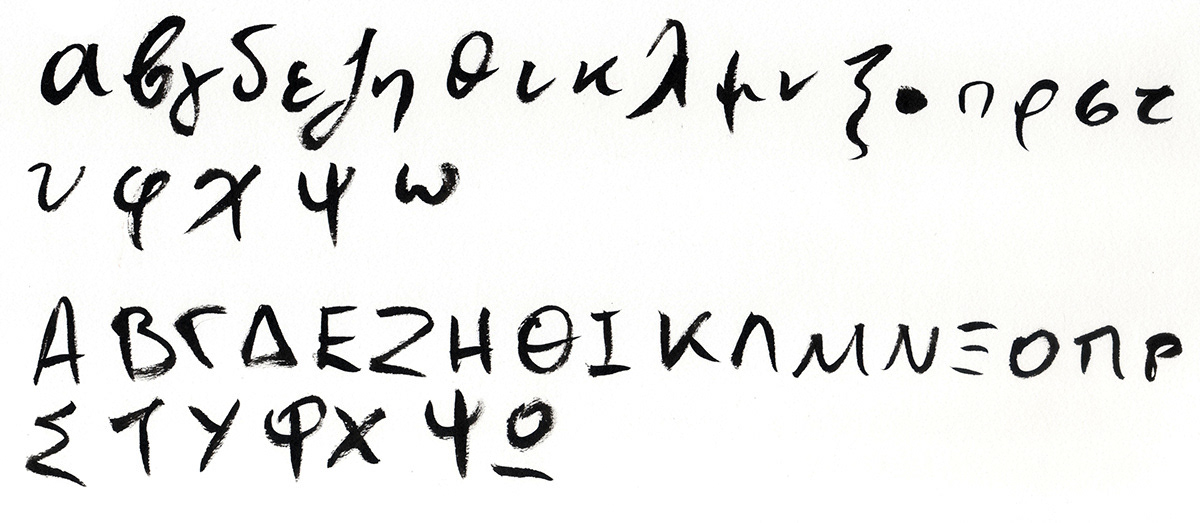 α β γ δ ε ζ η θ ι κ λ μ ν ξ ο π ρ σ τ
υ φ χ ψ ω
Α Β Γ Δ Ε Ζ Η Θ Ι Κ Λ Μ Ν Ξ Ο Π Ρ
Σ Τ Υ Φ Χ Ψ Ω